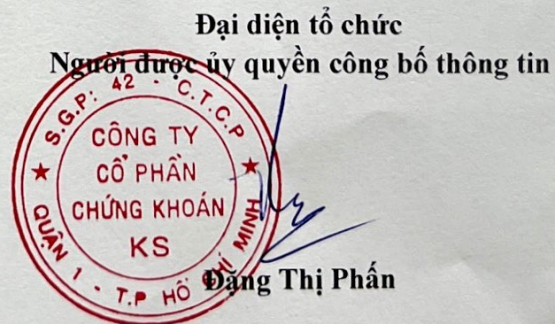 Đại diện tổ chức
Người được ủy quyền công bố thông tin
S.G.P: 42 - C.T.C.P
CÔNG TY
CỔ PHẦN
CHỨNG KHOÁN
KS
QUẬN 1 - T.P HỒ CHÍ MINH
Đặng Thị Phấn